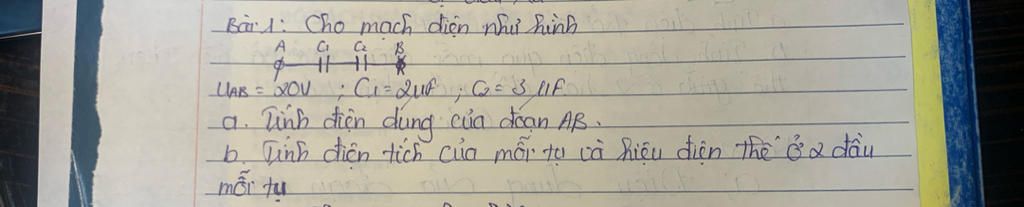 Bài 1: Cho mạch điện như hình
A C1 C2 B
UAB = 20V ; C1 = 2μF ; C2 = 3 μF
a. Tính điện dung của đoạn AB.
b. Tính điện tích của mỗi tụ và hiệu điện thế ở 2 đầu
mỗi tụ